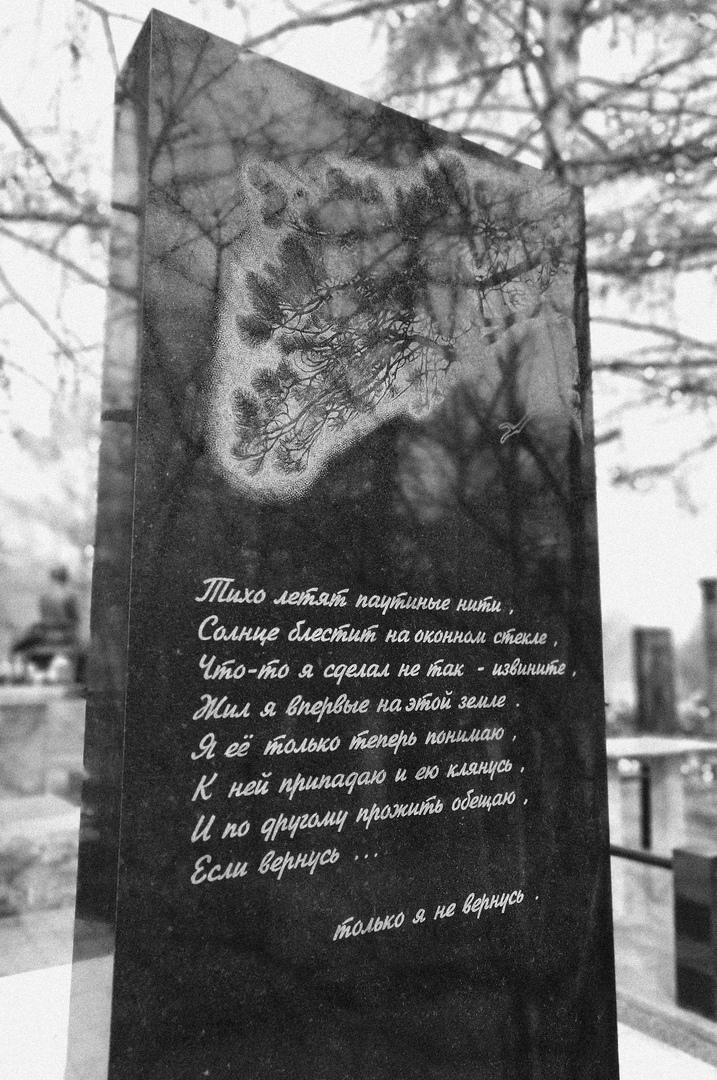 Тихо летят паутиные нити,
Солнце блестит на оконном стекле,
Что-то я сделал не так - извините,
Жил я впервые на этой земле.
Я её только теперь понимаю,
К ней припадаю и ею клянусь,
И по другому прожить обещаю,
Если вернусь ...
только я не вернусь.